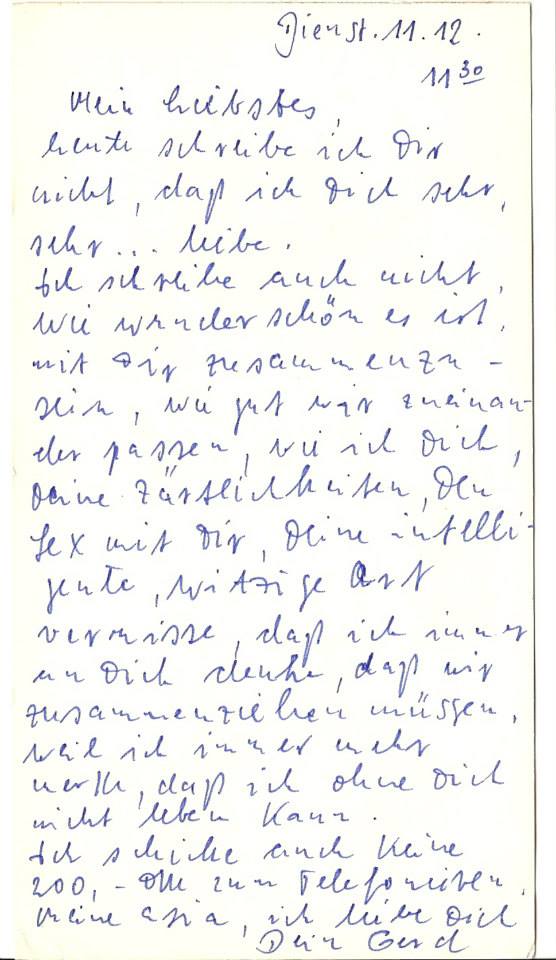 Dienst. 11.12.
11 30
Mein Liebstes,
heute schreibe ich Dir
nicht, daß ich Dich sehr,
sehr... liebe.
Ich schreibe auch nicht,
wie wunderschön es ist,
mit Dir zusammenzu-
sein, wie gut wir zueinan-
der passen, wie ich Dich,
Deine Zärtlichkeiten, Den
Sex mit Dir, Deine intelli-
gente, witzige Art
vermisse, daß ich immer
an Dich denke, daß wir
zusammenziehen müssen,
weil ich immer mehr
merke, daß ich ohne Dich
nicht leben kann.
Ich schicke auch keine
200,- DM zum Telefonieren.
Meine Asja, ich liebe Dich
Dein Gerd